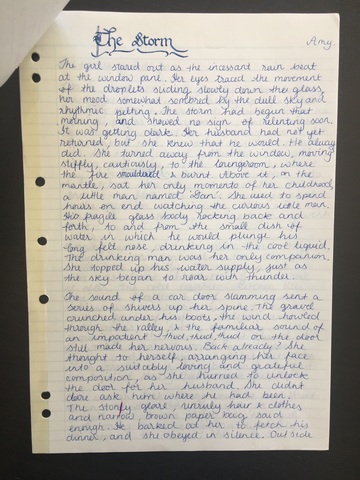 The Storm
Amy
The girl stared out as the incessant rain beat
at the window pane. Her eyes traced the movement
of the droplets sliding slowly down the glass,
her mood somewhat sombred by the dull sky and
rhythmic pelting. The storm had begun that
morning, and showed no sign of relenting soon.
It was getting dark. Her husband had not yet
returned, but she knew that he would. He always
did. She turned away from the window, moving
stiffly, cautiously, to the livingroom, where
the fire smouldered & burnt. Above it, on the
mantle, sat her only momento of her childhood,
a little man named 'Sam'. She used to spend
hours on end watching the curious little man.
His fragile glass body rocking back and
forth, to and from the small dish of
water in which he would plunge his
long felt nose, drinking in the cool liquid.
The drinking man was her only companion.
She topped up his water supply, just as
the sky began to roar with thunder.
The sound of a car door slamming sent a
series of shivers up her spine. The gravel
crunched under his boots, the wind howled
through the valley, & the familiar sound of
an impatient thud, thud, thud on the door
still made her nervous. Back already? She
thought to herself, arranging her face
into a suitably loving and grateful
composition, as she hurried to unlock
the door for her husband. She didnt
dare ask him where he had been.
The stony glare, unruly hair & clothes
and narrow brown paper bag said
enough. He barked at her to fetch his
dinner, and she obeyed in silence. Outside